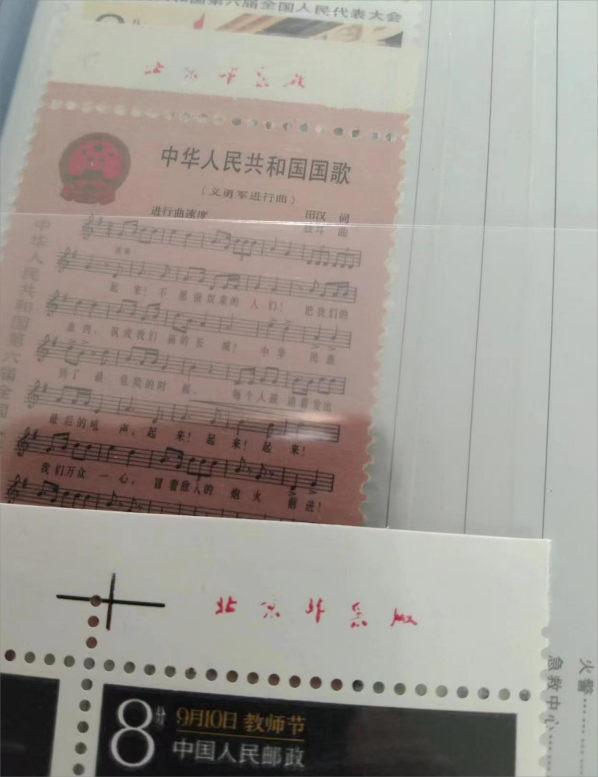 和国第六届全国人民代表大会
8分
中华人民共和国国歌
（义勇军进行曲）
进行曲速度
田汉 词
聂耳 曲
中华人民共和国第六届全国
起来！不愿做奴隶的人们！把我们的
血肉，筑成我们新的长城！中华民族
到了最危险的时候，每个人被迫着发出
最后的吼声，起来！起来！起来！
我们万众一心，冒着敌人的炮火前进！
北京
8分
9月10日 教师节
中国人民邮政
火警
急救中心